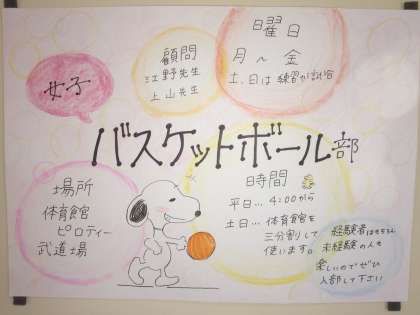 女子
顧問
辻野先生
上山先生
曜日
月～金
土、日は練習か試合
バスケットボール部
場所
体育館
ピロティー
武道場
時間
平日… 4:00から
土日… 体育館を
三分割して
使います。
経験者はもちろん
未経験の人も
楽しいのでぜひ
入部して下さい